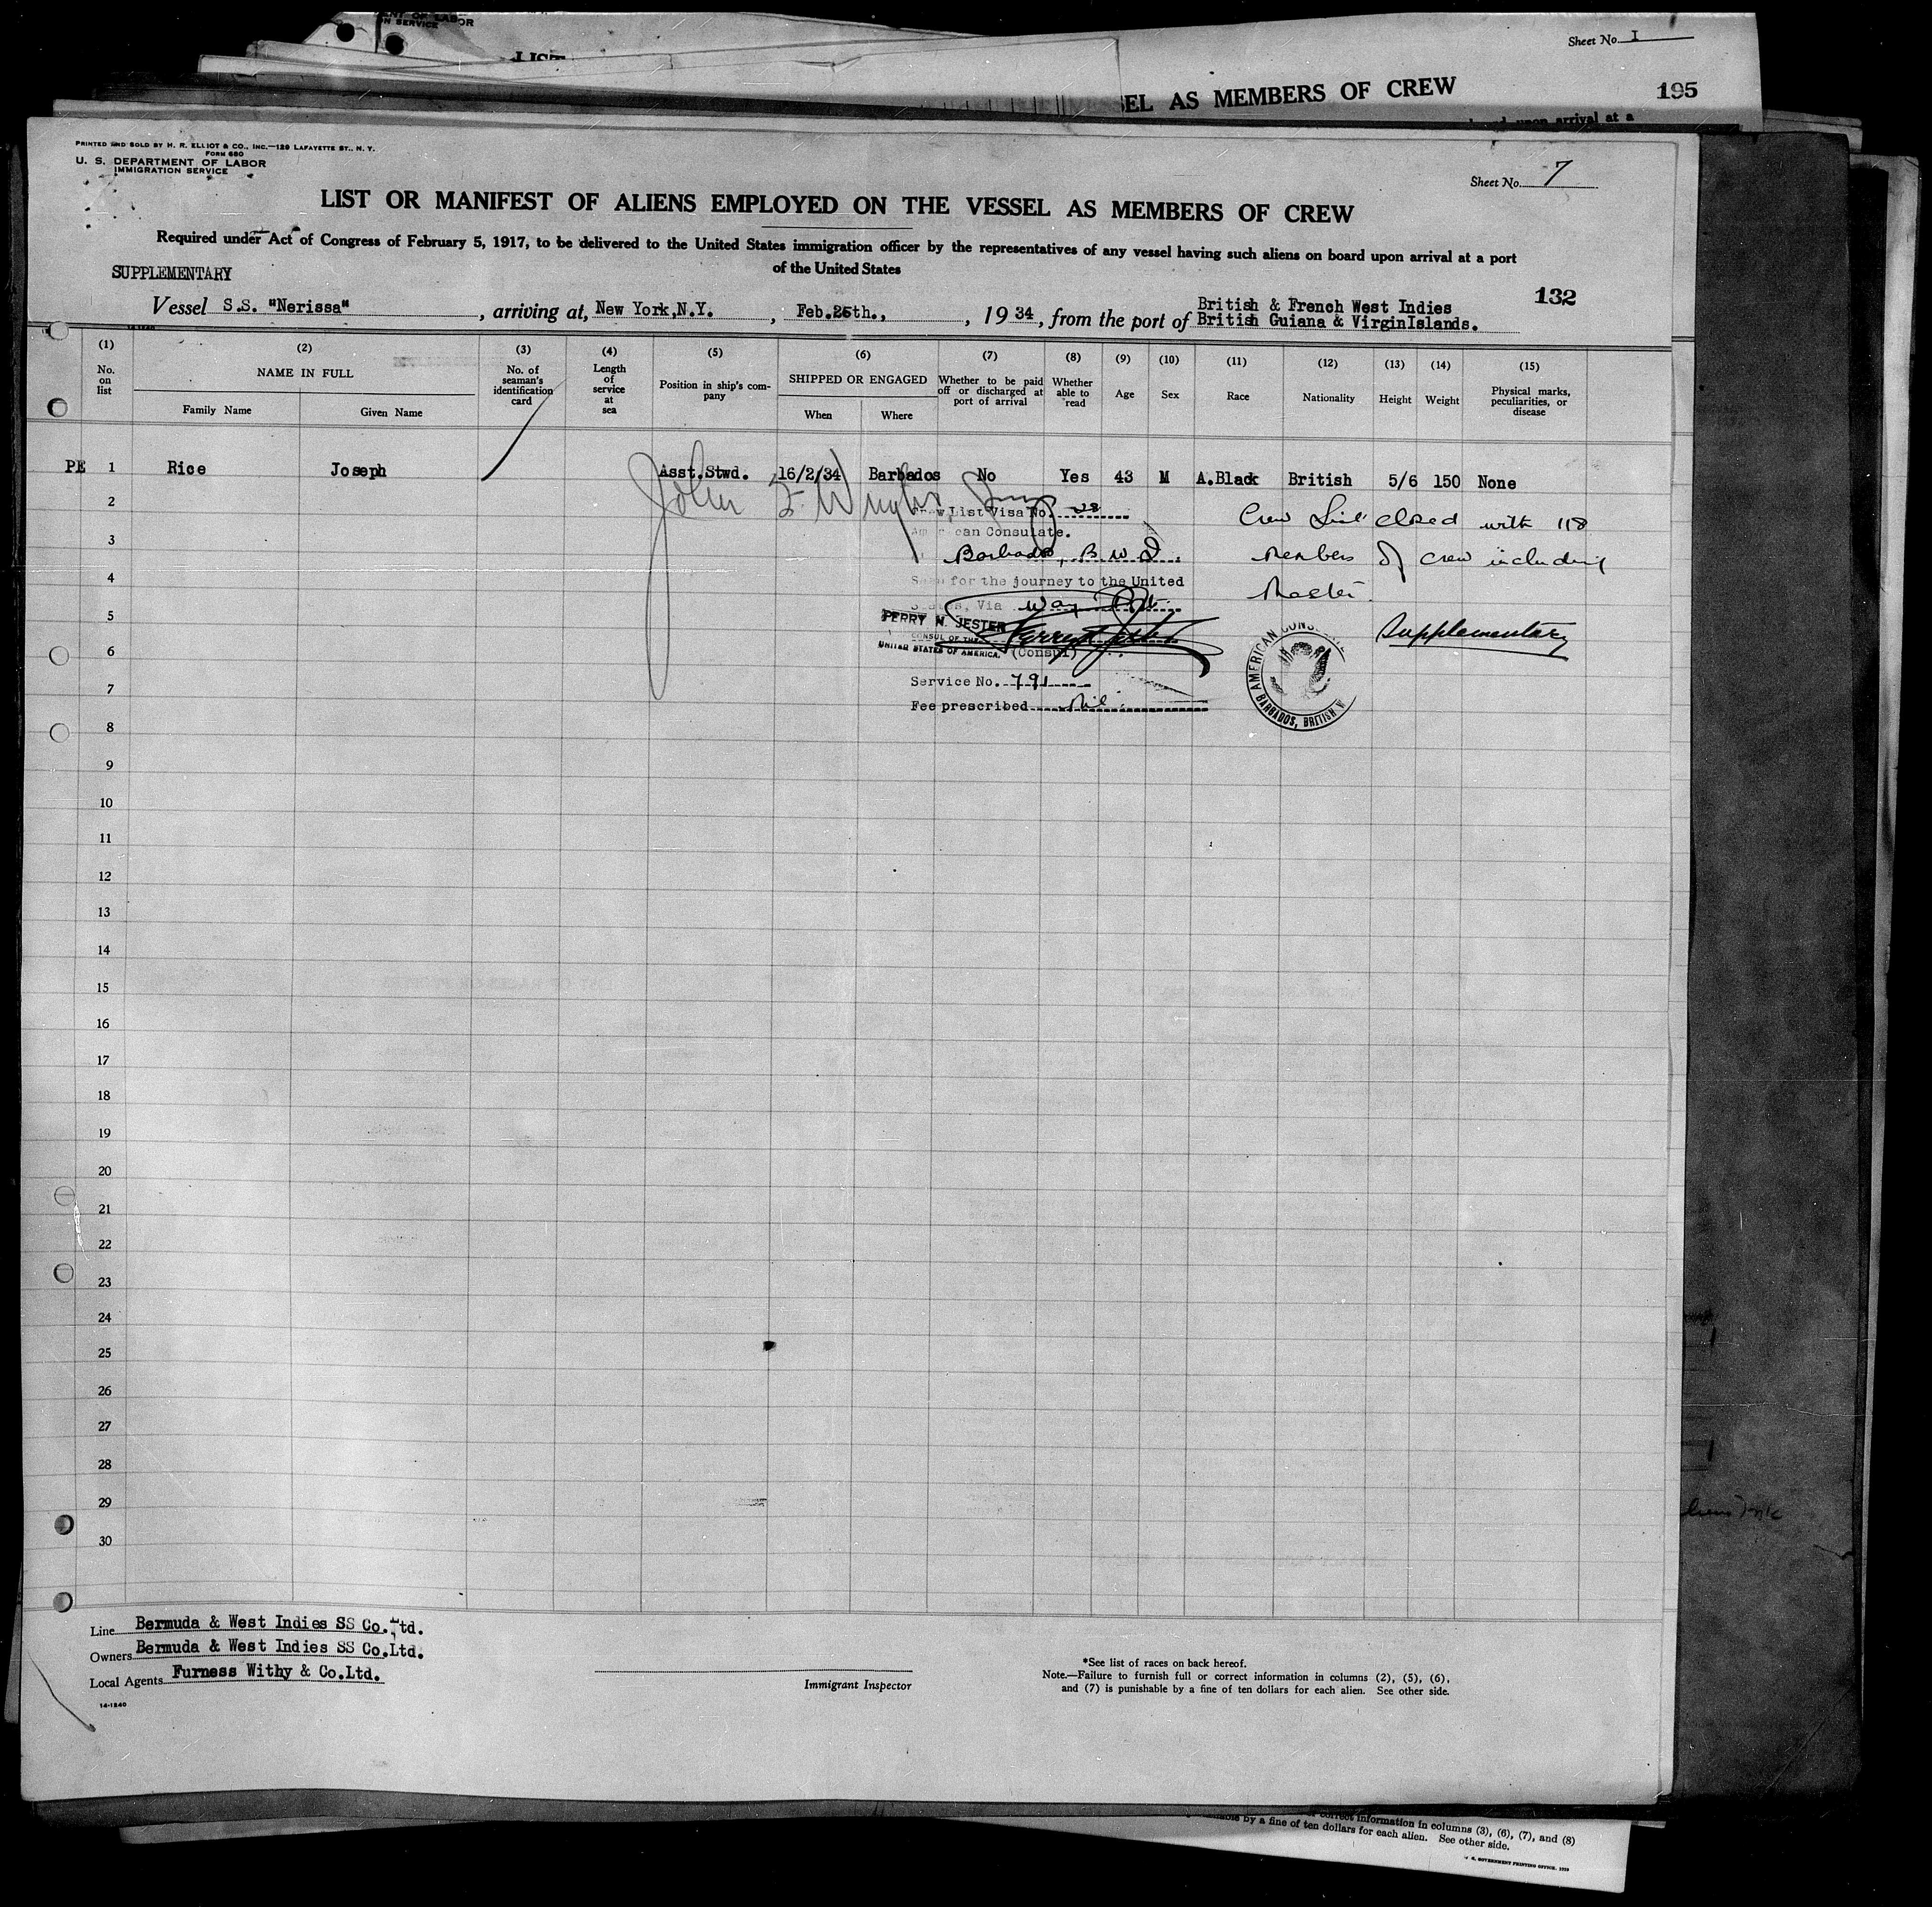 NT OF LABOR
ON SERVICE
LIST
Sheet No. I
SEL AS MEMBERS OF CREW
195
upon arrival at a
PRINTED AND SOLD BY H. R. ELLIOT & CO., INC.—129 LAFAYETTE ST., N. Y.
FORM 680
U. S. DEPARTMENT OF LABOR
IMMIGRATION SERVICE
Sheet No. 7
LIST OR MANIFEST OF ALIENS EMPLOYED ON THE VESSEL AS MEMBERS OF CREW
Required under Act of Congress of February 5, 1917, to be delivered to the United States immigration officer by the representatives of any vessel having such aliens on board upon arrival at a port
of the United States
SUPPLEMENTARY
132
Vessel S.S. "Nerissa", arriving at, New York,N.Y., Feb.25th., , 1934, from the port of British & French West Indies
British Guiana & VirginIslands.
(1) (2) (3) (4) (5) (6) (7) (8) (9) (10) (11) (12) (13) (14) (15)
No. on list
NAME IN FULL
Family Name Given Name
No. of seaman's identification card
Length of service at sea
Position in ship's com-
pany
SHIPPED OR ENGAGED
When Where
Whether to be paid off or discharged at port of arrival
Whether able to read
Age
Sex
Race
Nationality
Height
Weight
Physical marks, peculiarities, or disease
PE 1 Rice Joseph Asst.Stwd. 16/2/34 Barbados No Yes 43 M A.Black British 5/6 150 None
John F Wright
Crew List Visa No. 28
American Consulate.
Barbados, B.W.I.
Seen for the journey to the United
States, Via Way Ports
PERRY N. JESTER
CONSUL OF THE
UNITED STATES OF AMERICA.
(Consul)
Service No. 791
Fee prescribed Nil.
Crew List closed with 118
members of crew including
Master.
Supplementary
AMERICAN CONSULATE
BARBADOS, BRITISH W
2
3
4
5
6
7
8
9
10
11
12
13
14
15
16
17
18
19
20
21
22
23
24
25
26
27
28
29
30
Line Bermuda & West Indies SS Co.Ltd.
Owners Bermuda & West Indies SS Co.Ltd.
Local Agents Furness Withy & Co.Ltd.
14-1240
Immigrant Inspector
*See list of races on back hereof.
Note.—Failure to furnish full or correct information in columns (2), (5), (6),
and (7) is punishable by a fine of ten dollars for each alien. See other side.
correct information in columns (3), (6), (7), and (8)
by a fine of ten dollars for each alien. See other side.
GOVERNMENT PRINTING OFFICE. 1919